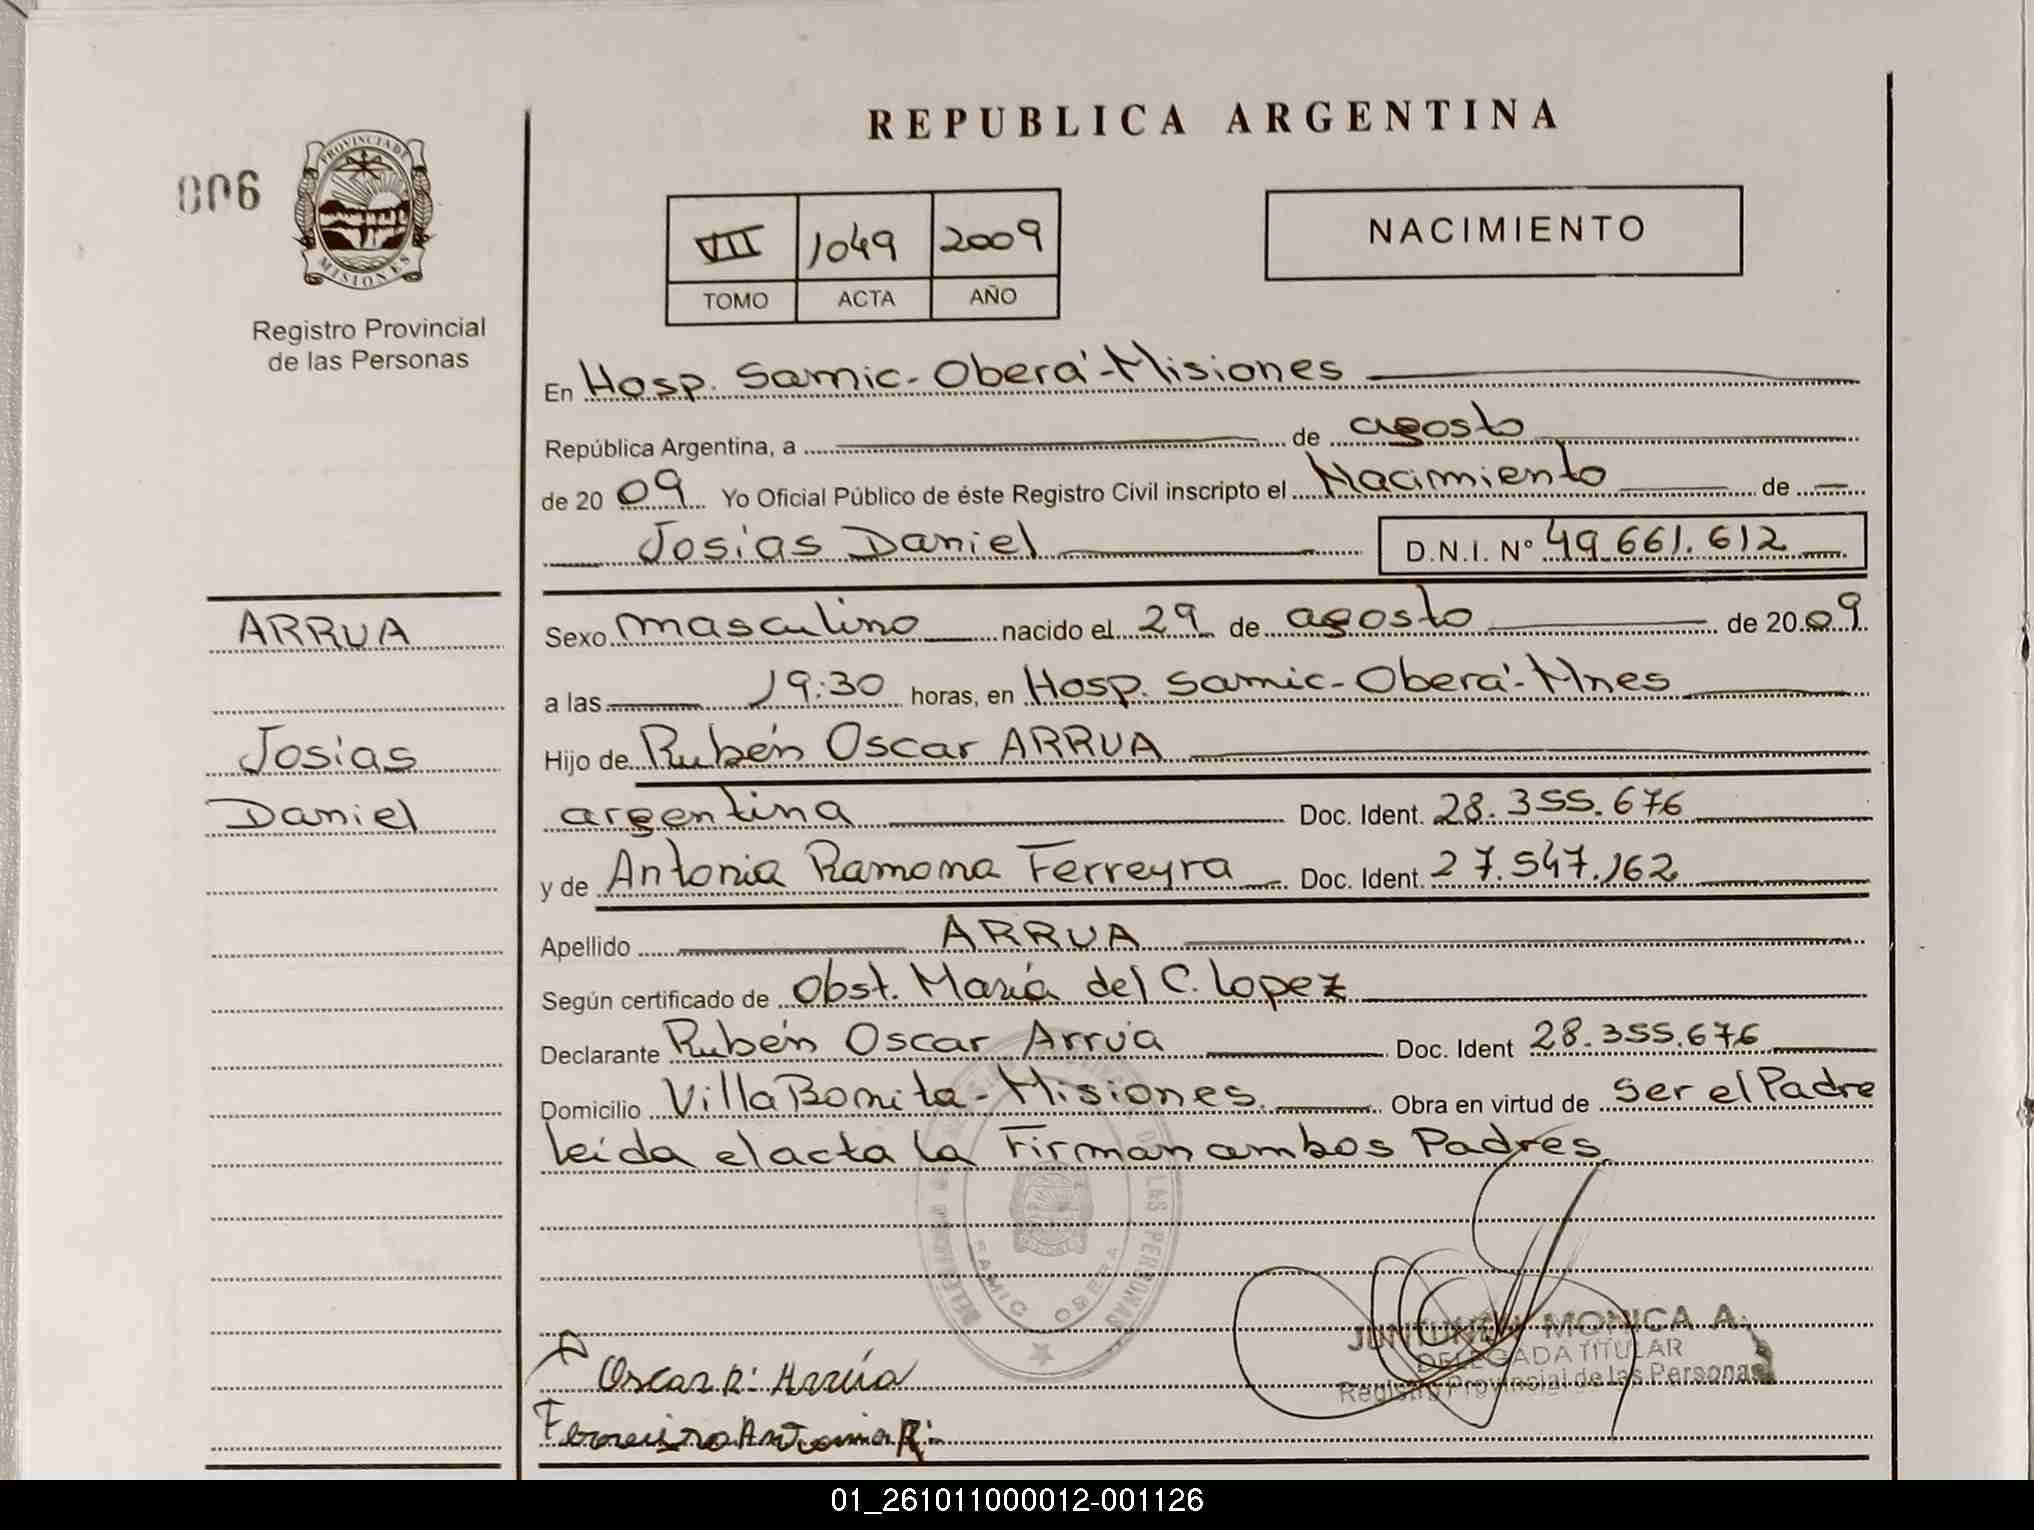 REPUBLICA ARGENTINA
006
PROVINCIA DE
MISIONES
Registro Provincial
de las Personas
VII 1049 2009
TOMO ACTA AÑO
NACIMIENTO
En Hosp. Samic - Oberá - Misiones
República Argentina, a de agosto
de 2009 Yo Oficial Público de éste Registro Civil inscripto el Nacimiento de
Josías Daniel D.N.I. N° 49.661.612
ARRUA
Josías
Daniel
Sexo masculino nacido el 29 de agosto de 2009
a las 19:30 horas, en Hosp. Samic - Oberá - Mnes
Hijo de Rubén Oscar ARRUA
argentina Doc. Ident. 28.355.676
y de Antonia Ramona Ferreyra Doc. Ident. 27.547.162
Apellido ARRUA
Según certificado de Obst. María del C. Lopez
Declarante Rubén Oscar Arrúa Doc. Ident 28.355.676
Domicilio Villa Bonita - Misiones. Obra en virtud de ser el Padre
leída el acta la Firman ambos Padres
SAMIC OBERA
Oscar R. Arrúa
MONICA A.
DELEGADA TITULAR
Registro Provincial de las Personas
Antonia R.
01_261011000012-001126